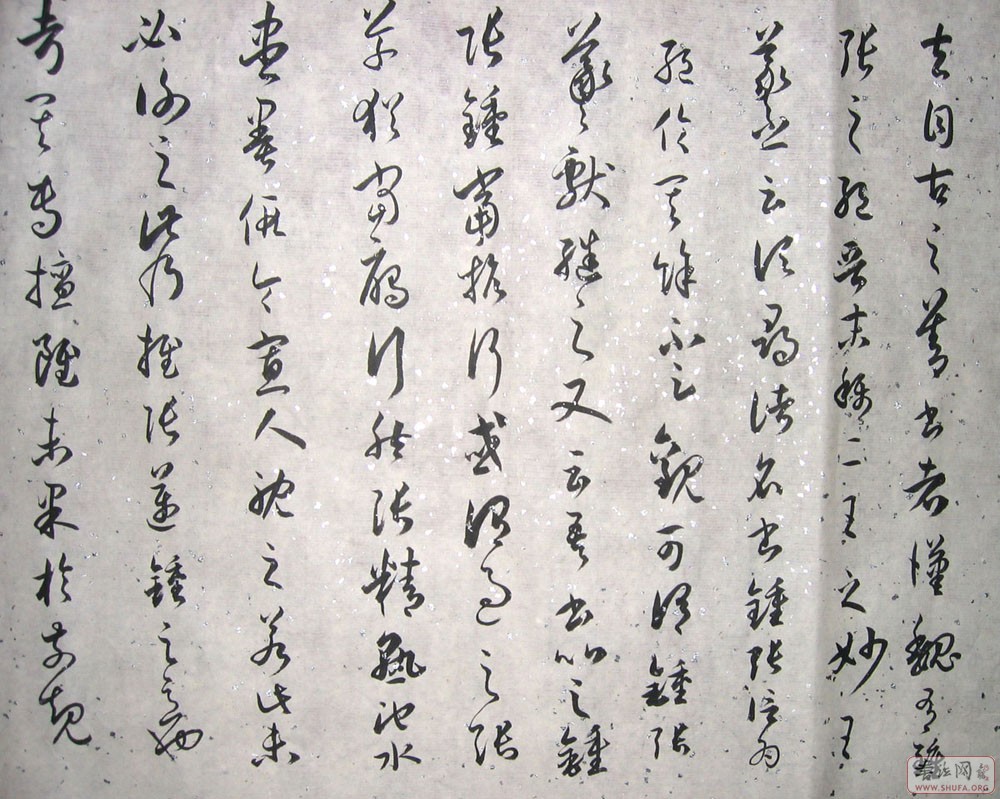 夫自古之善書者漢魏有鍾
張之絕晉末稱二王之妙王
羲之云頃尋諸名書鍾張信為
絕倫其餘不足觀可謂鍾張
羲獻繼之又云吾書比之鍾
張鍾當抗行或謂過之張
草猶當雁行然張精熟池水
盡墨假令寡人耽之若此未
必謝之此乃推張邁鍾之意也
考其專擅雖未果於前規
WWW.SHUFA.ORG